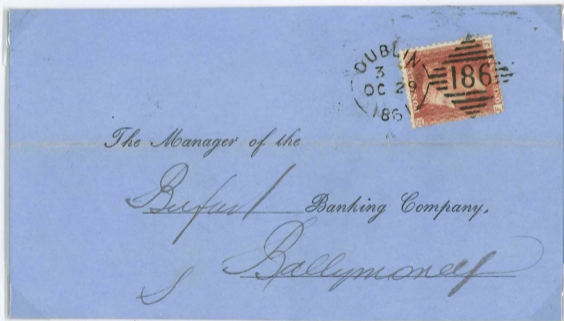 DUBLIN
3 186
OC 29
186
The Manager of the
Belfast Banking Company,
Ballymoney